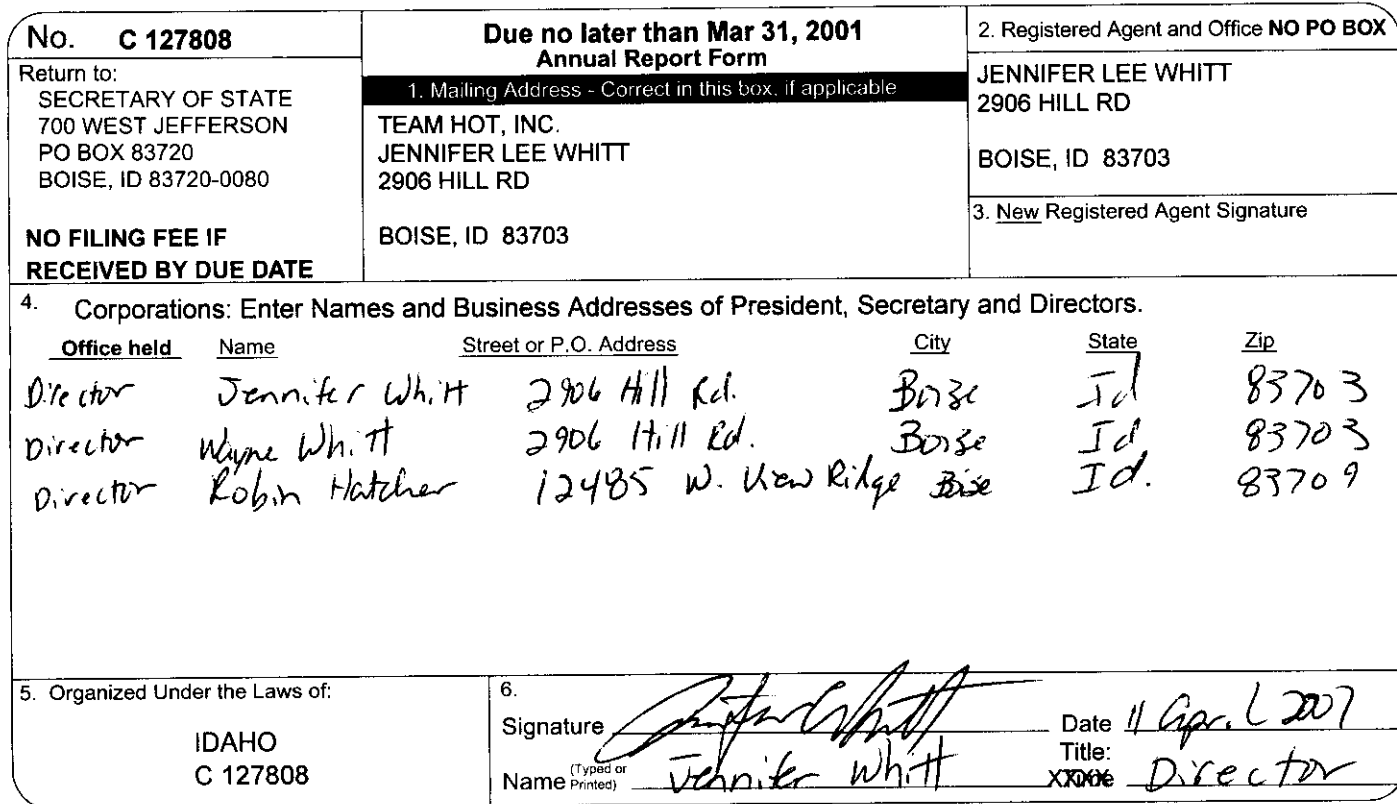 No. C 127808
Return to:
SECRETARY OF STATE
700 WEST JEFFERSON
PO BOX 83720
BOISE, ID 83720-0080
NO FILING FEE IF
RECEIVED BY DUE DATE
Due no later than Mar 31, 2001
Annual Report Form
1. Mailing Address - Correct in this box, if applicable
TEAM HOT, INC.
JENNIFER LEE WHITT
2906 HILL RD
BOISE, ID 83703
2. Registered Agent and Office NO PO BOX
JENNIFER LEE WHITT
2906 HILL RD
BOISE, ID 83703
3. New Registered Agent Signature
4. Corporations: Enter Names and Business Addresses of President, Secretary and Directors.
Office held Name Street or P.O. Address City State Zip
Director Jennifer Whitt 2906 Hill Rd. Boise Id 83703
Director Wayne Whitt 2906 Hill Rd. Boise Id 83703
Director Robin Hatcher 12485 W. View Ridge Boise Id. 83709
5. Organized Under the Laws of:
IDAHO
C 127808
6.
Signature Jennifer Whitt Date 11 April
Name (Typed or Printed) Jennifer Whitt Title: Director